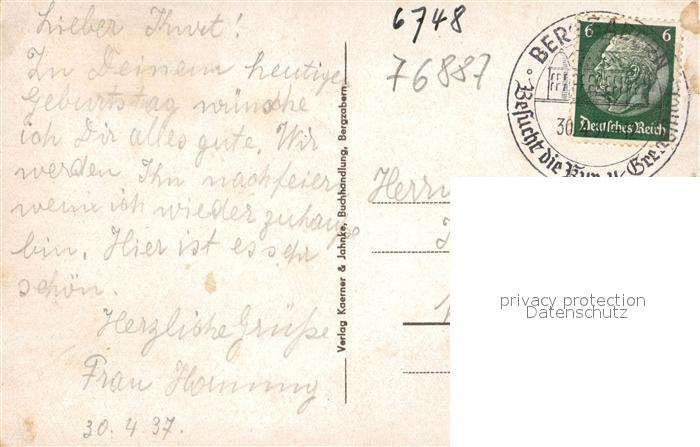 Lieber Kurt!
Zu Deinem heutigen
Geburtstag wünsche
ich Dir alles gute. Wir
werden Ihn nachfeiern
wenn ich wieder zuhause
bin. Hier ist es sehr
schön.
Herzliche Grüße
Frau Hornung
30.4.37.
Verlag Kaerner & Jahnke, Buchhandlung, Bergzabern
6748
76887
BERGZABERN
30.
Besucht die Kur- u.
6 6
Deutsches Reich
Herrn
privacy protection
Datenschutz